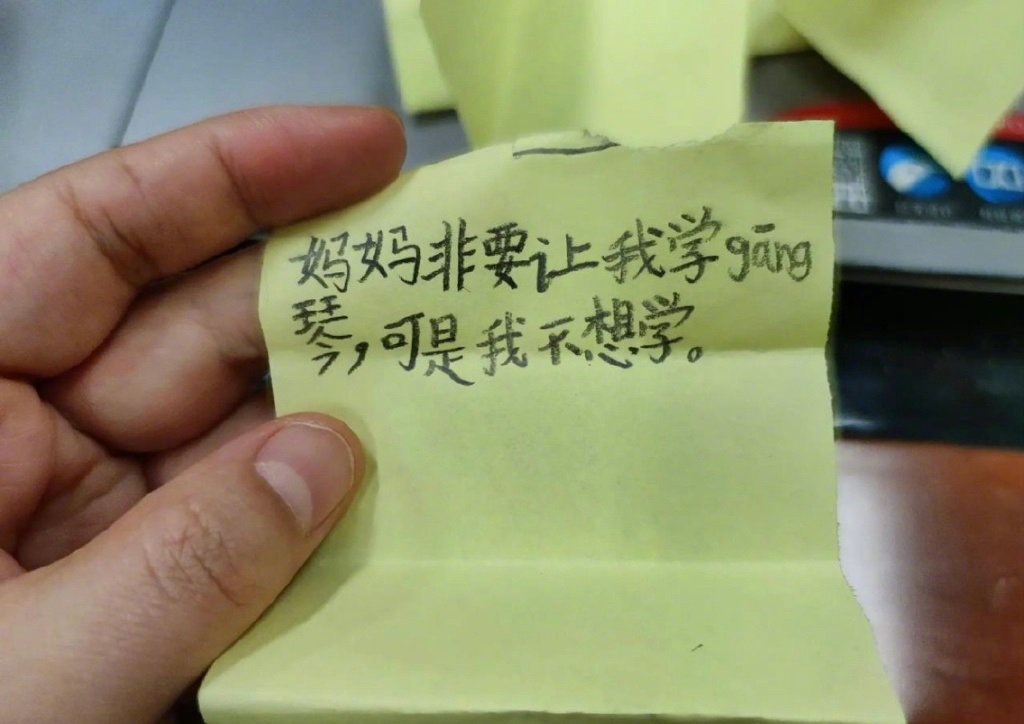 妈妈非要让我学gāng
琴,可是我不想学。